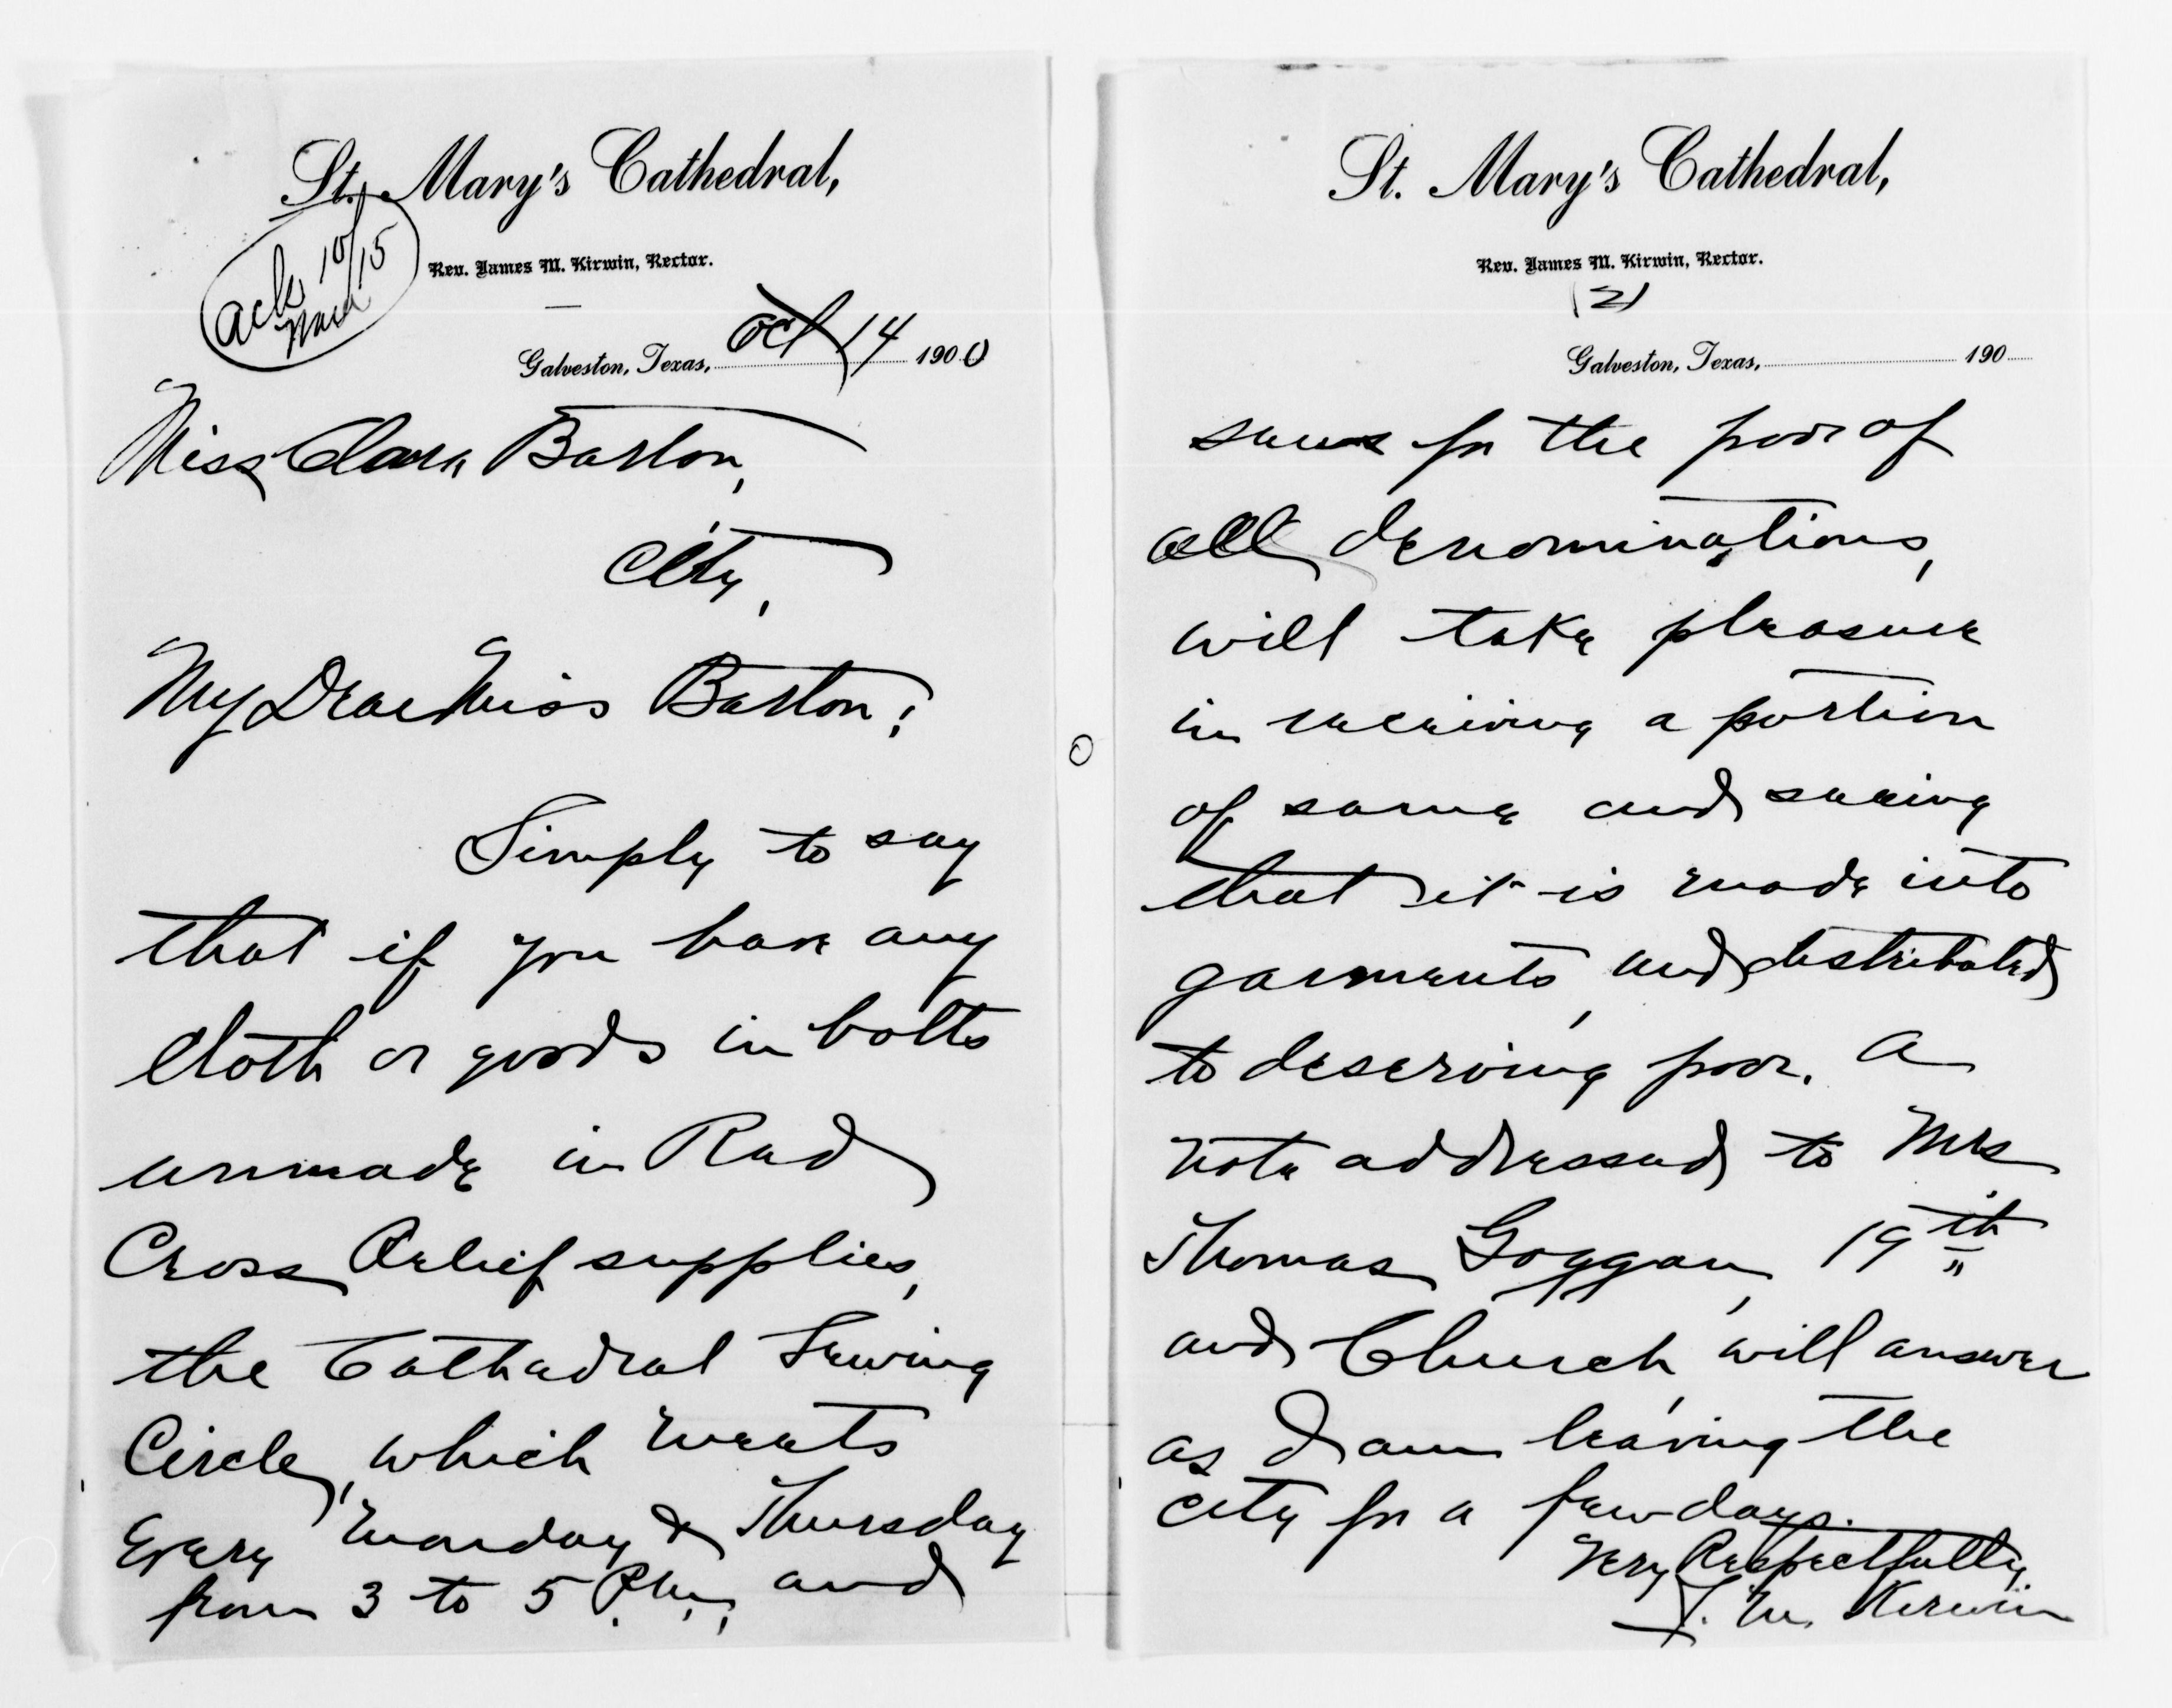 St. Mary's Cathedral,
Rev. James M. Kirwin, Rector.
ack 10/15
Galveston, Texas, Oct 14 1900
Miss Clara Barton,
City,
My Dear Miss Barton;
Simply to say
that if you have any
cloth or goods in bolts
unmade in Red
Cross Relief supplies,
the Cathedral Sewing
Circle, which meets
every Monday & Thursday
from 3 to 5 P.M., and
St. Mary's Cathedral,
Rev. James M. Kirwin, Rector.
(2)
Galveston, Texas, 190
sews for the poor of
all denominations,
will take pleasure
in receiving a portion
of same and seeing
that it is made into
garments, and distributed
to deserving poor. A
note addressed to Mrs
Thomas Goggan, 19th
and Church, will answer
as I am leaving the
city for a few days.
Very Respectfully,
J. M. Kirwin